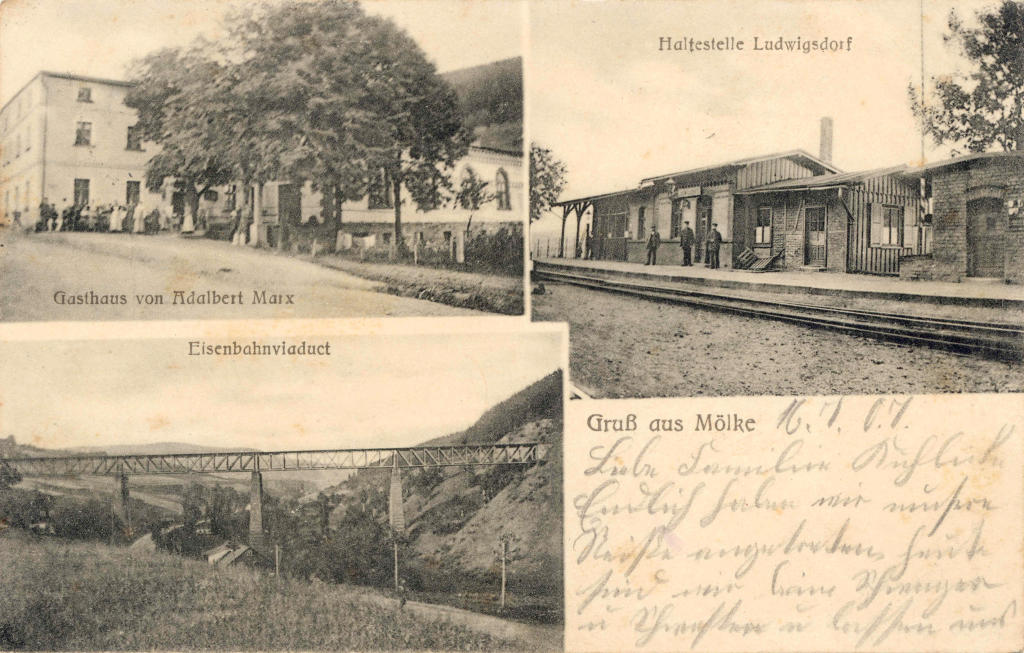 Haltestelle Ludwigsdorf
Gasthaus von Adalbert Marx
Eisenbahnviaduct
Gruß aus Mölke
16.7.07.
Liebe Familie
Endlich haben wir unsere
Reise angetreten, heute
sind wir beim Schwager
u Schwester u lassen uns